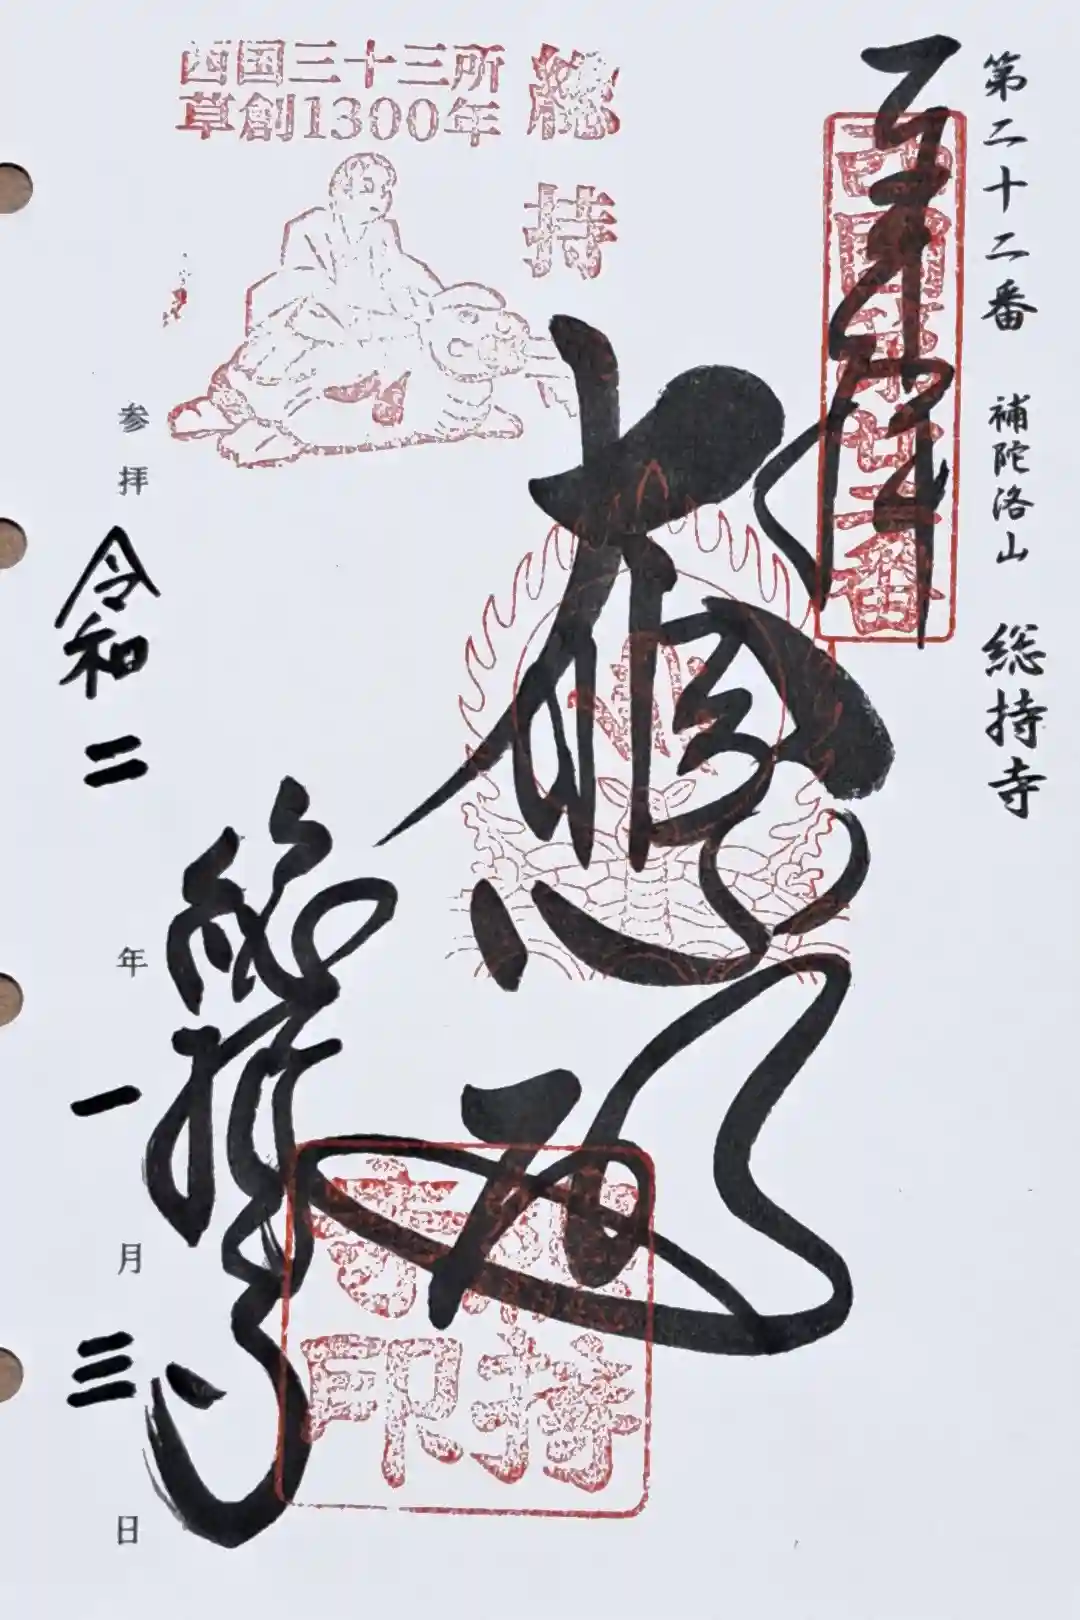 第二十二番 補陀洛山 総持寺
奉拝
西国廿二番
大悲殿
総持寺
総持寺印
西国三十三所
草創1300年
総持
参拝 令和二年一月三日